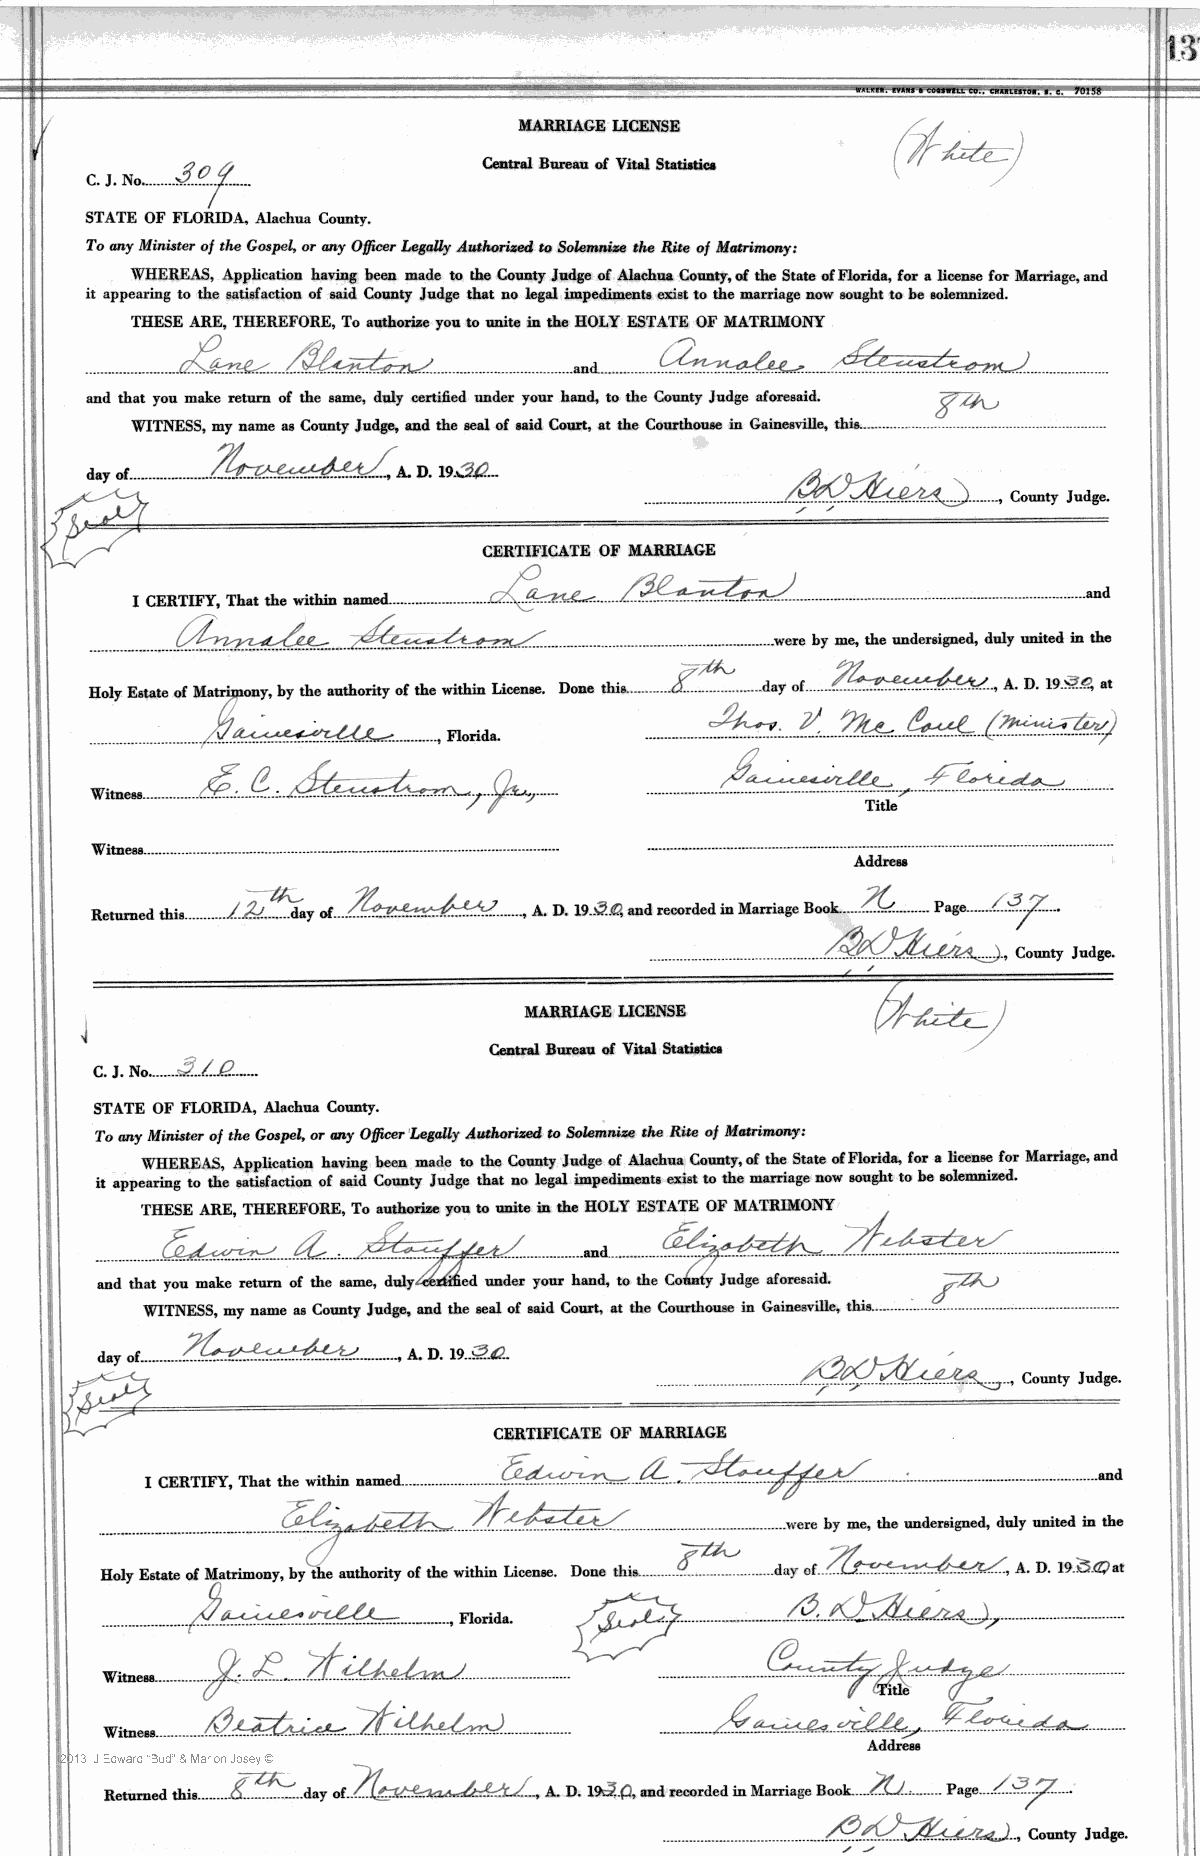 137
WALKER, EVANS & COGSWELL CO., CHARLESTON, S. C. 70158
MARRIAGE LICENSE
(White)
Central Bureau of Vital Statistics
C. J. No. 309
STATE OF FLORIDA, Alachua County.
To any Minister of the Gospel, or any Officer Legally Authorized to Solemnize the Rite of Matrimony:
WHEREAS, Application having been made to the County Judge of Alachua County, of the State of Florida, for a license for Marriage, and
it appearing to the satisfaction of said County Judge that no legal impediments exist to the marriage now sought to be solemnized.
THESE ARE, THEREFORE, To authorize you to unite in the HOLY ESTATE OF MATRIMONY
Lane Blanton and Annalee Stenstrom
and that you make return of the same, duly certified under your hand, to the County Judge aforesaid.
WITNESS, my name as County Judge, and the seal of said Court, at the Courthouse in Gainesville, this 8th
day of November, A. D. 1930
B D Hiers, County Judge.
Seal
CERTIFICATE OF MARRIAGE
I CERTIFY, That the within named Lane Blanton and
Annalee Stenstrom were by me, the undersigned, duly united in the
Holy Estate of Matrimony, by the authority of the within License. Done this 8th day of November, A. D. 1930, at
Gainesville, Florida. Thos. V. McCaul (Minister)
Witness E. C. Stenstrom, Jr., Gainesville, Florida
Title
Witness
Address
Returned this 12th day of November, A. D. 1930, and recorded in Marriage Book N Page 137.
B D Hiers, County Judge.
MARRIAGE LICENSE
(White)
Central Bureau of Vital Statistics
C. J. No. 310
STATE OF FLORIDA, Alachua County.
To any Minister of the Gospel, or any Officer Legally Authorized to Solemnize the Rite of Matrimony:
WHEREAS, Application having been made to the County Judge of Alachua County, of the State of Florida, for a license for Marriage, and
it appearing to the satisfaction of said County Judge that no legal impediments exist to the marriage now sought to be solemnized.
THESE ARE, THEREFORE, To authorize you to unite in the HOLY ESTATE OF MATRIMONY
Edwin A. Stouffer and Elizabeth Webster
and that you make return of the same, duly certified under your hand, to the County Judge aforesaid.
WITNESS, my name as County Judge, and the seal of said Court, at the Courthouse in Gainesville, this 8th
day of November, A. D. 1930
B D Hiers, County Judge.
Seal
CERTIFICATE OF MARRIAGE
I CERTIFY, That the within named Edwin A. Stouffer and
Elizabeth Webster were by me, the undersigned, duly united in the
Holy Estate of Matrimony, by the authority of the within License. Done this 8th day of November, A. D. 1930, at
Gainesville, Florida. Seal B. D. Hiers,
Witness J. L. Wilhelm County Judge
Title
Witness Beatrice Wilhelm Gainesville, Florida
Address
2013 J Edward "Bud" & Marion Josey ©
Returned this 8th day of November, A. D. 1930, and recorded in Marriage Book N. Page 137.
B D Hiers, County Judge.